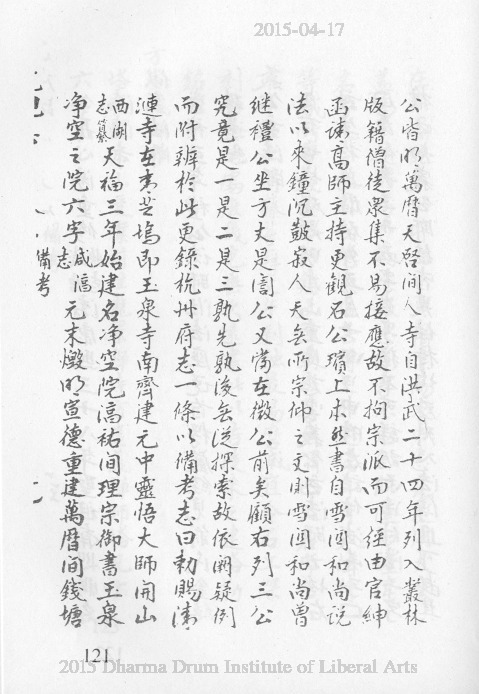 2015-04-17
公皆明萬曆天啓間人寺自洪武二十四年列入叢林
版籍僧徒衆集不易接應故不拘宗派而可經由官紳
函請高師主持更觀石公上書自雪関和尚説
法以來鐘沉鼓寂人天無所宗仰之文則雪関和尚曽
继禮公坐方丈是公又當在微公前矣顧右列三公
究竟是一是二是三孰先孰後無從探索故依闕疑例
而附辨於此更錄杭州府志一條以備考志曰勅賜清
漣寺在青芝塢即玉泉寺南齊建元中靈悟大師開山
西湖志纂天福三年始建名净空院淳祐間理宗御書玉泉
净空之院六字咸淳志元末燬明宣德重建萬曆間錢塘
備考
121
2015 Dharma Drum Institute of Liberal Arts